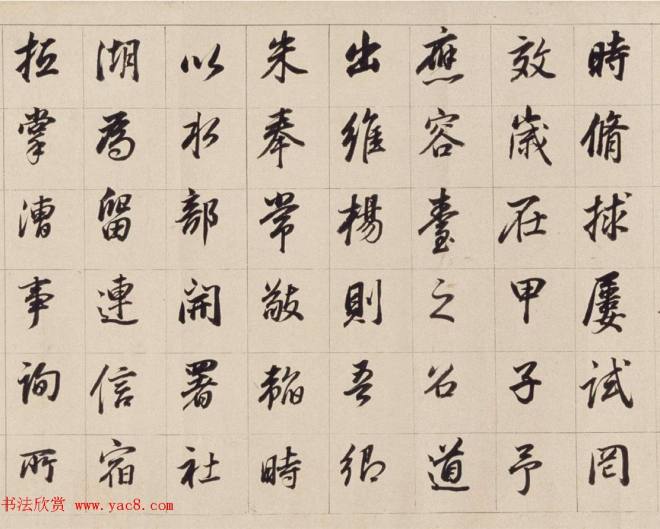 時脩捄屡试罔
效歲在甲子予
應容臺之召道
出維楊則吾鄉
朱奉常敬韜時
以水部開署社
湖為留連信宿
抵掌漕事询所
书法欣赏 www.yac8.com